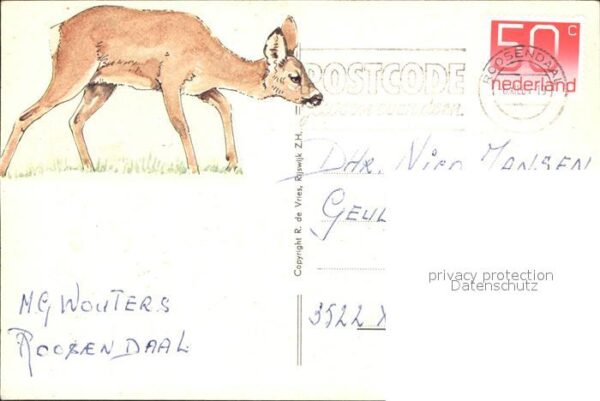 50 C
nederland
ROOSENDAAL
POSTCODE
Copyright R. de Vries, Rijswijk Z.H.
DHR. NICO JANSEN
GEUL
3522
privacy protection
Datenschutz
M.G WOUTERS
ROOSENDAAL